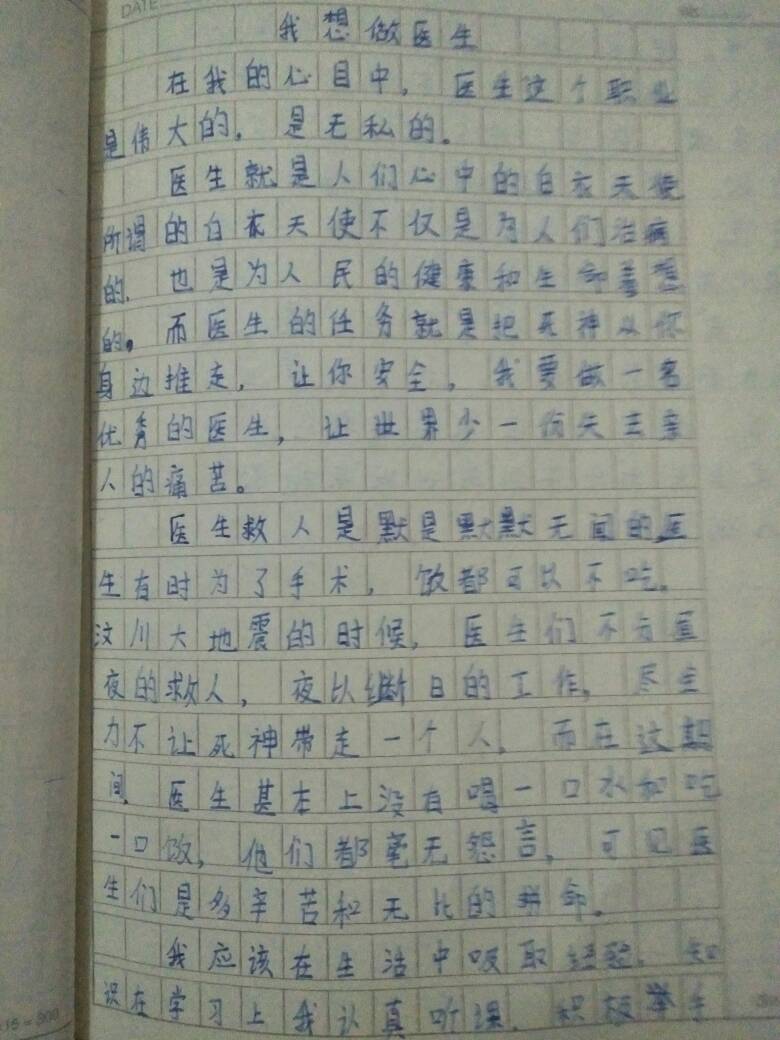 DATE
我想做医生
在我的心目中，医生这个职业
是伟大的，是无私的。
医生就是人们心中的白衣天使
所谓的白衣天使不仅是为人们治病
的，也是为人民的健康和生命着想
的。而医生的任务就是把死神从你
身边推走，让你安全，我要做一名
优秀的医生，让世界少一份失去亲
人的痛苦。
医生救人是默是默默无闻的，医
生有时为了手术，饭都可以不吃。
汶川大地震的时候，医生们不分昼
夜的救人，夜以继日的工作，尽全
力不让死神带走一个人，而在这期
间，医生甚本上没有喝一口水和吃
一口饭，他们都毫无怨言，可见医
生们是多辛苦和无比的拼命。
我应该在生活中吸取经验，知
识在学习上我认真听课，积极举手
15=300